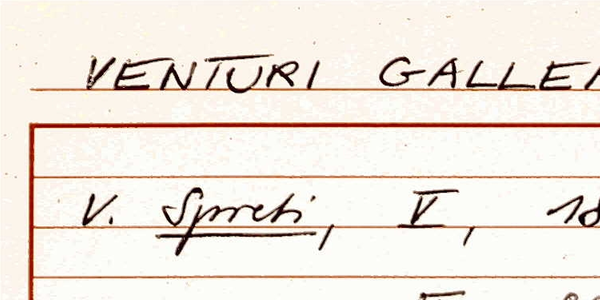 VENTURI GALLE
V. Spreti, V, 18